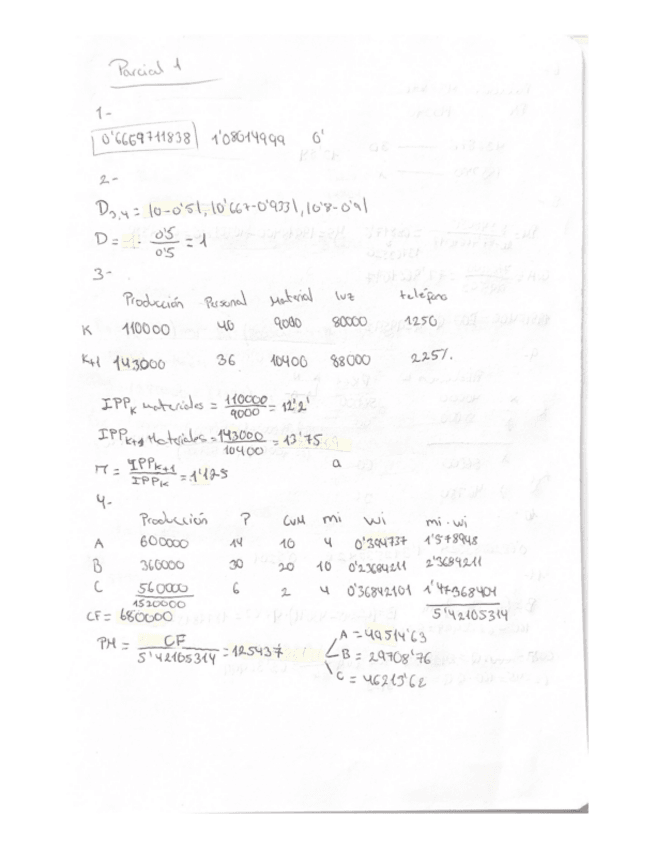 Parcial 1
1-
0'6669711838 1'08014999 0'
2-
D3,4 = |0-0'5|, |0'667-0'933|, |0'8-0'9|
D = 1 · 0'5/0'5 = 1
3-
Producción Personal Material luz teléfono
K 110000 40 9000 80000 1250
K+1 143000 36 10400 88000 225%
IPPK materiales = 110000/9000 = 12'2'
IPPK+1 Materiales = 143000/10400 = 13'75
π = IPPK+1/IPPK = 1'125 a
4-
Producción P CVM mi wi mi·wi
A 600000 14 10 4 0'394737 1'578948
B 360000 30 20 10 0'23684211 2'3684211
C 560000 6 2 4 0'36842101 1'47368404
1520000 5'42105314
CF = 680000
PM = CF/5'42105314 = 125437
A = 49514'63
B = 29708'76
C = 46213'62